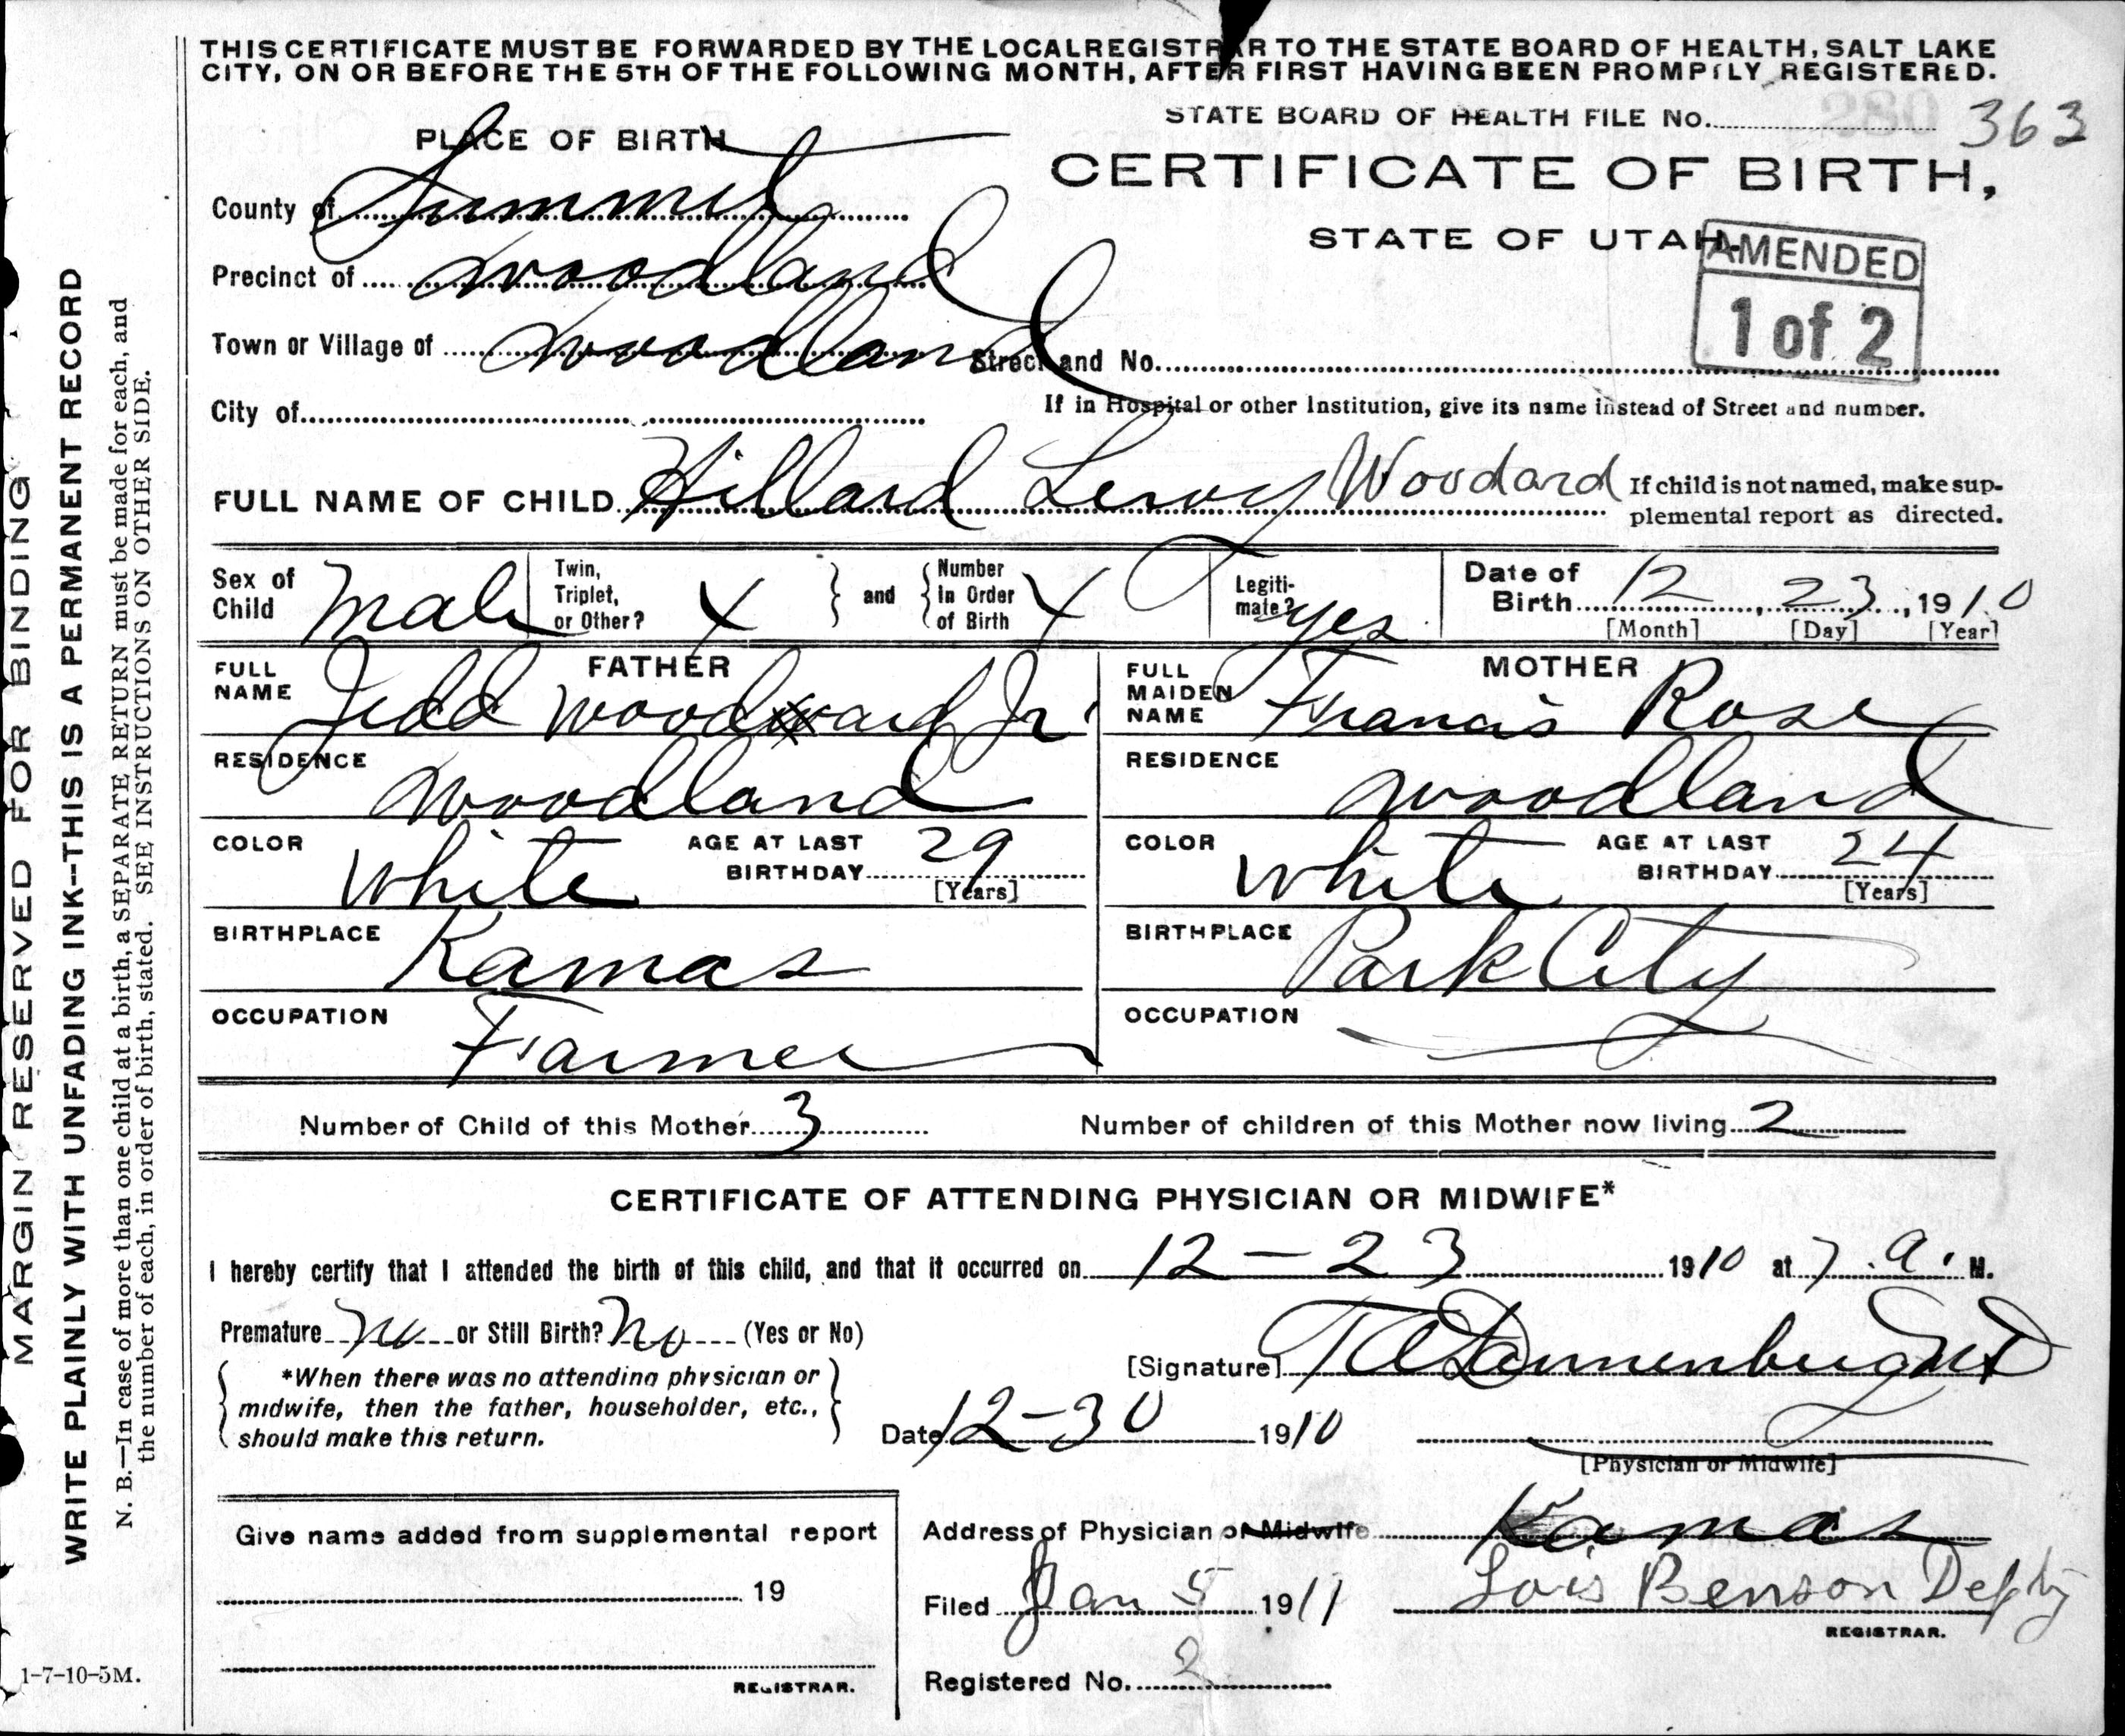 THIS CERTIFICATE MUST BE FORWARDED BY THE LOCAL REGISTRAR TO THE STATE BOARD OF HEALTH, SALT LAKE
CITY, ON OR BEFORE THE 5TH OF THE FOLLOWING MONTH, AFTER FIRST HAVING BEEN PROMPTLY REGISTERED.
STATE BOARD OF HEALTH FILE No. 363
PLACE OF BIRTH
CERTIFICATE OF BIRTH,
STATE OF UTAH.
AMENDED
1 of 2
County of Summit
Precinct of Woodland
Town or Village of Woodland Street and No.
City of
If in Hospital or other Institution, give its name instead of Street and number.
FULL NAME OF CHILD Hillard Leroy Woodard
If child is not named, make sup-
plemental report as directed.
Sex of Child Male
Twin, Triplet, or Other? X
and
Number In Order of Birth X
Legiti-mate? Yes
Date of Birth 12, 23, 1910
[Month] [Day] [Year]
FATHER
FULL NAME Jedd Woodward Jr
RESIDENCE Woodland
COLOR White AGE AT LAST BIRTHDAY 29
[Years]
BIRTHPLACE Kamas
OCCUPATION Farmer
MOTHER
FULL MAIDEN NAME Francis Rose
RESIDENCE Woodland
COLOR White AGE AT LAST BIRTHDAY 24
[Years]
BIRTHPLACE Park City
OCCUPATION
Number of Child of this Mother 3
Number of children of this Mother now living 2
CERTIFICATE OF ATTENDING PHYSICIAN OR MIDWIFE*
I hereby certify that I attended the birth of this child, and that it occurred on 12-23 1910 at 7 a. M.
Premature No or Still Birth? No (Yes or No)
*When there was no attending physician or
midwife, then the father, householder, etc.,
should make this return.
[Signature]
Date 12-30 1910
[Physician or Midwife]
Address of Physician or Midwife Kamas
Filed Jan 5 1911
Lois Benson Depty
REGISTRAR.
Registered No. 2
Give name added from supplemental report
19
REGISTRAR.
1-7-10-5M.
MARGIN RESERVED FOR BINDING
WRITE PLAINLY WITH UNFADING INK--THIS IS A PERMANENT RECORD
N. B.—In case of more than one child at a birth, a SEPARATE RETURN must be made for each, and
the number of each, in order of birth, stated. SEE INSTRUCTIONS ON OTHER SIDE.